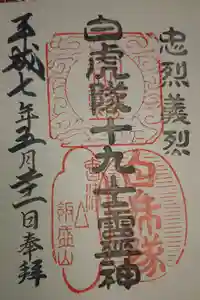 忠烈義烈
白虎隊十九士靈神
平成七年五月二十一日奉拜
白虎隊
飯盛山